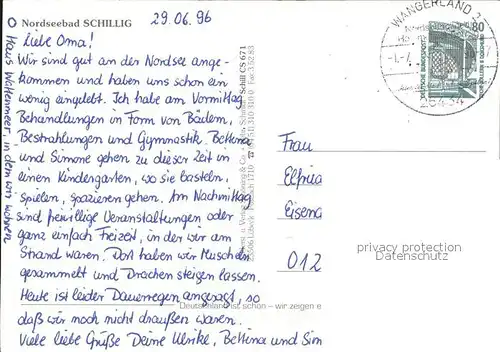 Nordseebad SCHILLIG
29.06.96
Liebe Oma!
Wir sind gut an der Nordsee ange-
kommen und haben uns schon ein
wenig eingelebt. Ich habe am Vormittag
Behandlungen in Form von Bädern,
Bestrahlungen und Gymnastik. Bettina
und Simone gehen zu dieser Zeit in
einen Kindergarten, wo sie basteln,
spielen, spazieren gehen. Am Nachmittag
sind freiwillige Veranstaltungen oder
ganz einfach Freizeit, in der wir am
Strand waren. Dort haben wir Muscheln
gesammelt und Drachen steigen lassen.
Heute ist leider Dauerregen angesagt, so
daß wir noch nicht draußen waren.
Viele liebe Grüße Deine Ulrike, Bettina und Sim
Haus Wattenmeer, in dem wir wohnen
Deutschland ist schön – wir zeigen e
Schill CS 671
WANGERLAND 3
26434
80
DEUTSCHE BUNDESPOST
Frau
Elfrie
Eisena
012
privacy protection
Datenschutz